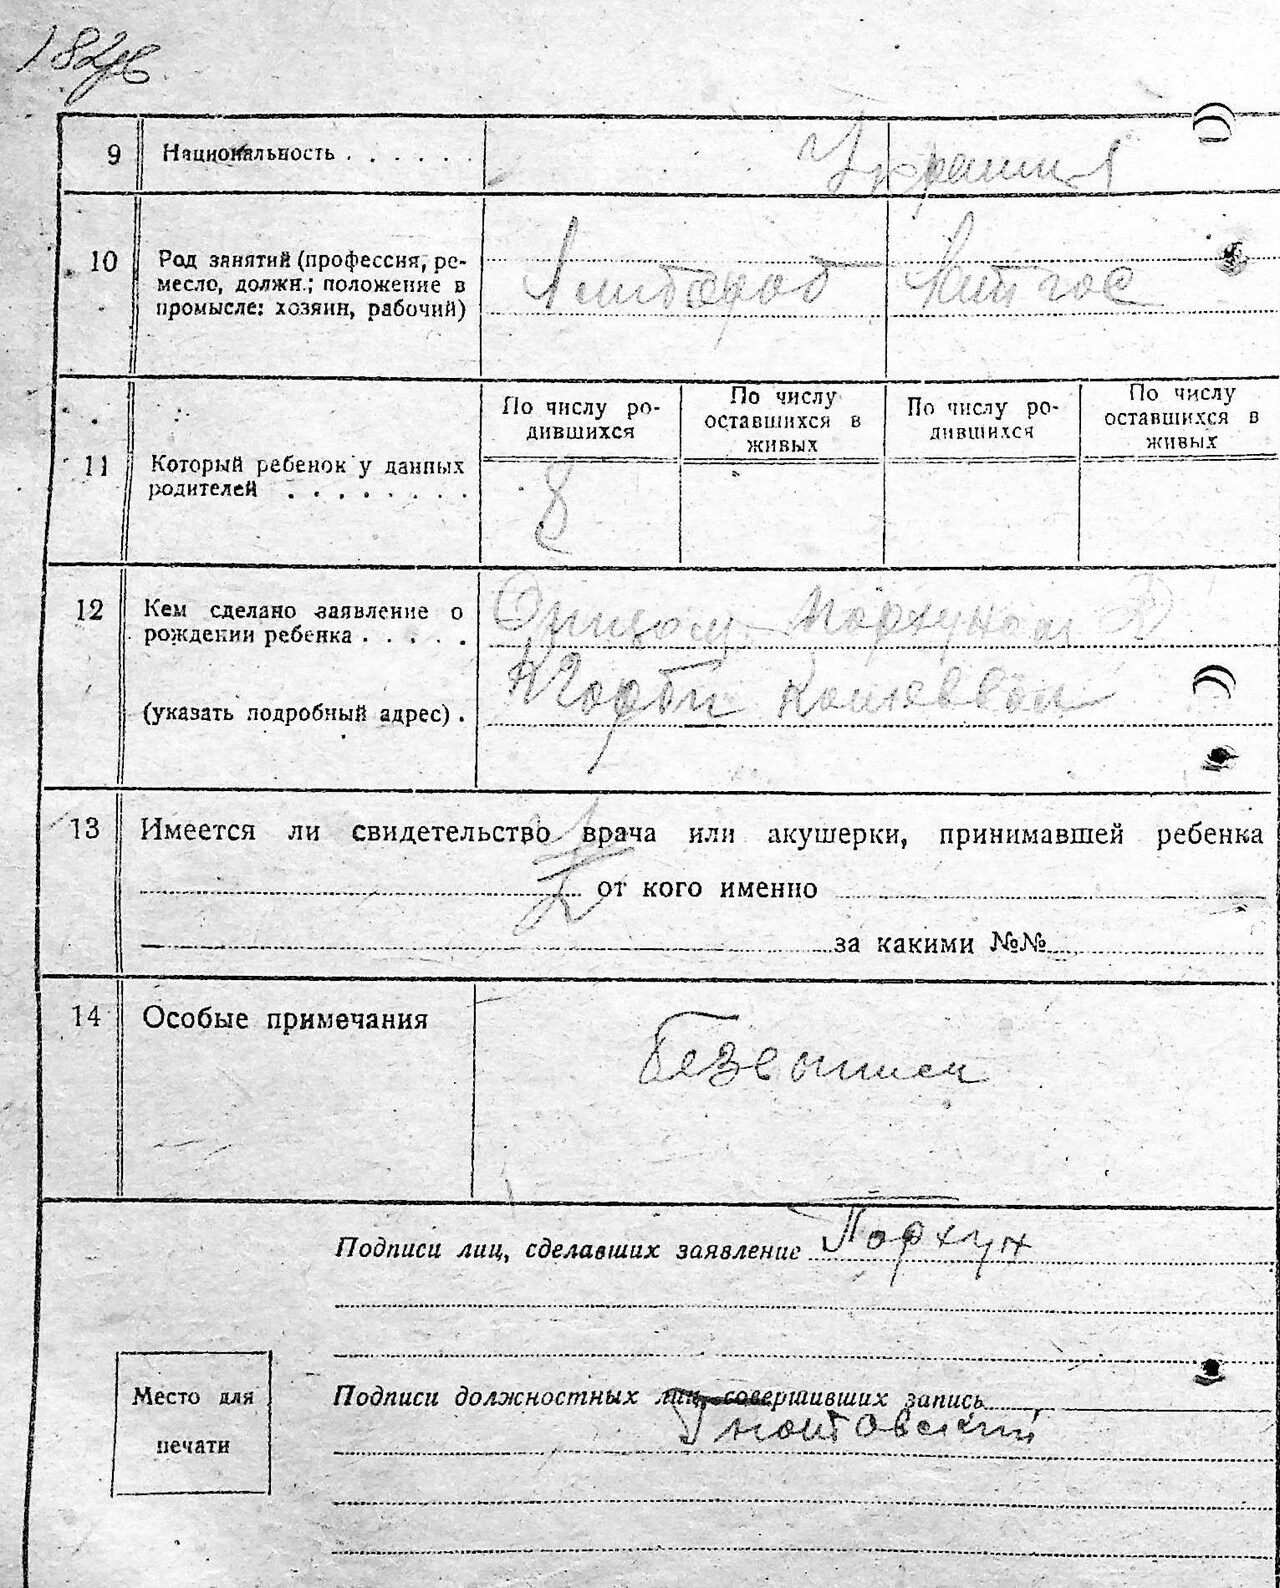 9 Национальность . . . . . .
Украинц
10 Род занятий (профессия, ре-
месло, должн.; положение в
промысле: хозяин, рабочий)
Хлибороб
11 Который ребенок у данных
родителей . . . . . . . .
По числу ро-
дившихся
По числу
оставшихся в
живых
По числу ро-
дившихся
По числу
оставшихся в
живых
8
12 Кем сделано заявление о
рождении ребенка . . . . .
(указать подробный адрес) .
Отцом Пархуном
13 Имеется ли свидетельство врача или акушерки, принимавшей ребенка
от кого именно
за какими №№
14 Особые примечания
Подписи лиц, сделавших заявление Пархун
Подписи должностных лиц, совершивших запись
Место для
печати